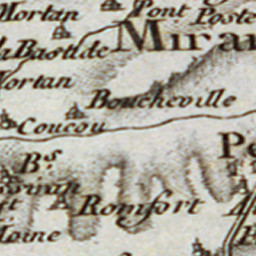 Mortan
Pont
Poste
la Bastide
Mira
Mortan
Boucheville
Coucou
Pe
B.s
Romfort
Moine